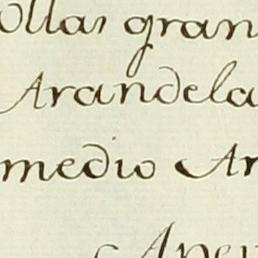 ollas gran
Arandela
medio Ar
Aper